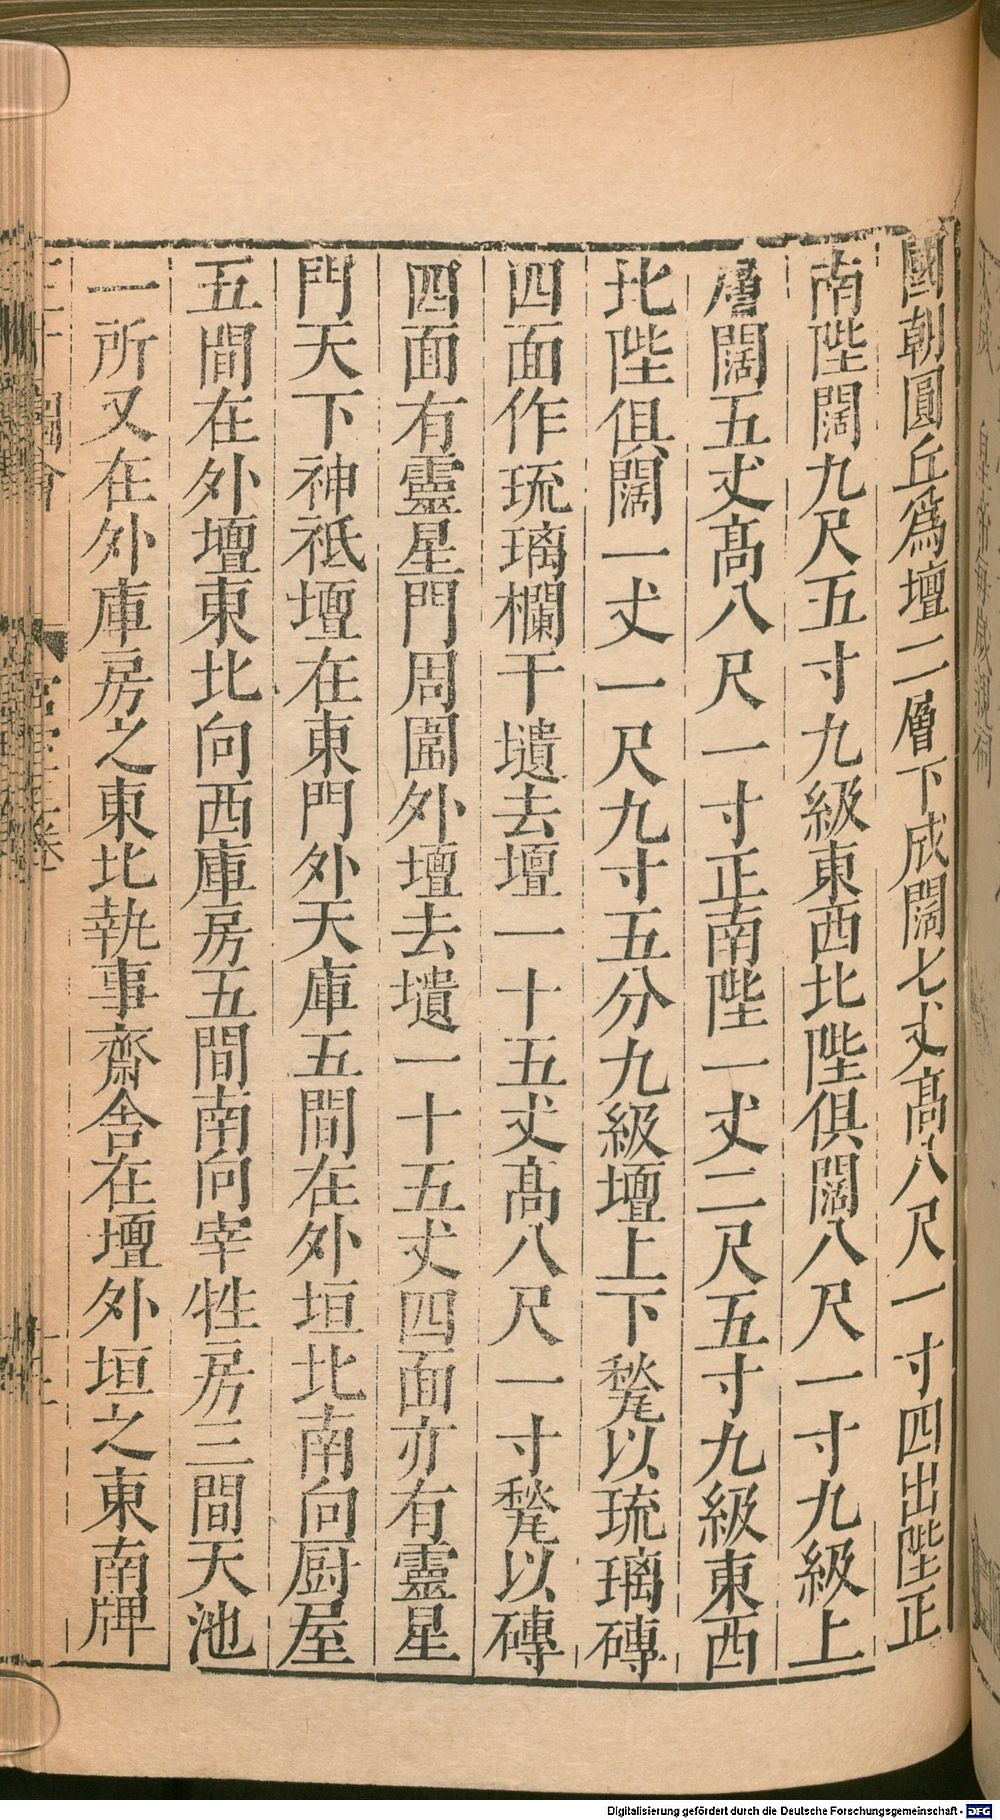 國朝圓丘爲壇二層下成闊七丈髙八尺一寸四出陛正
南陛闊九尺五寸九級東西北陛俱闊八尺一寸九級上
層闊五丈髙八尺一寸正南陛一丈二尺五寸九級東西
北陛俱闊一丈一尺九寸五分九級壇上下甃以琉璃磚
四面作琉璃欄干壝去壇一十五丈髙八尺一寸甃以磚
四面有靈星門周圍外壇去壝一十五丈四面亦有靈星
門天下神祗壇在東門外天庫五間在外垣北南向厨屋
五間在外壇東北向西庫房五間南向宰牲房三間天池
一所又在外庫房之東北執事齋舍在壇外垣之東南牌
三才圖會
宫室三卷
Digitalisierung gefördert durch die Deutsche Forschungsgemeinschaft - DFG